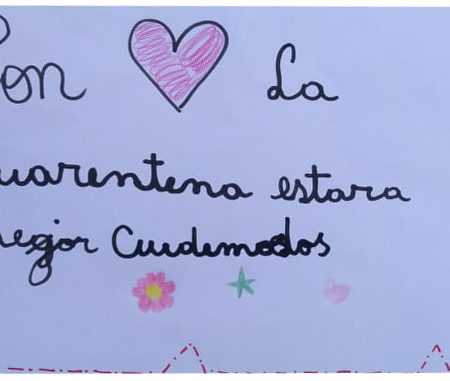 Con La
uarentena estara
ejor Cuidemodos